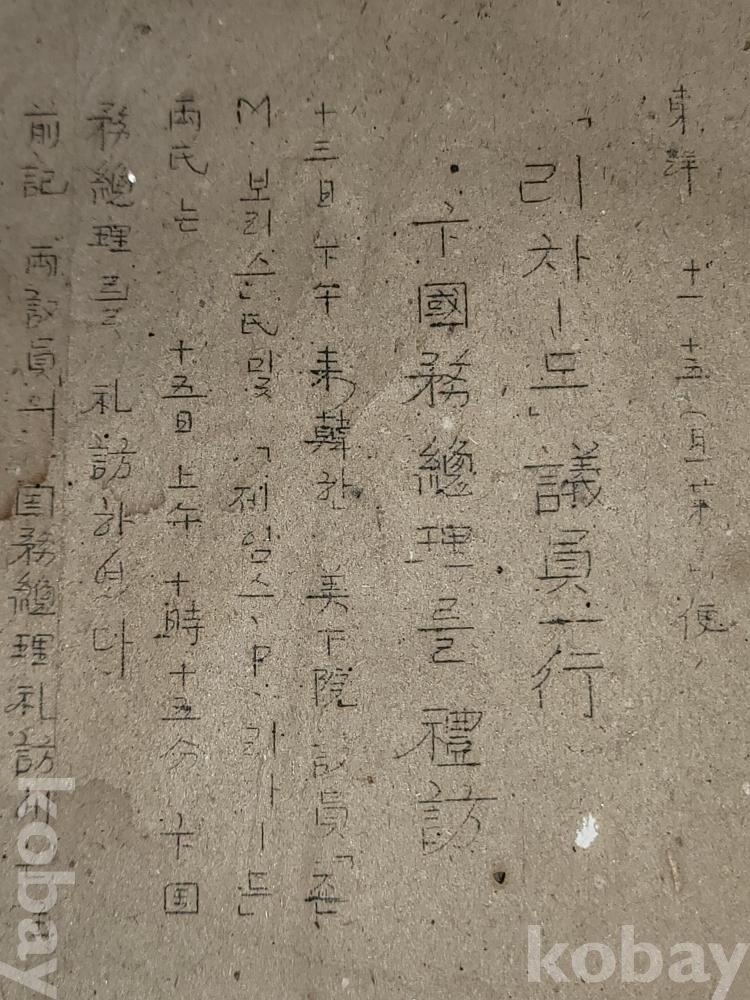 東洋 十一 十五 (月) 第 便
「리차ー드」議員一行
卞國務總理를 禮訪
十三日 下午 来韓한 美下院 議員 「죤
M·보리슨氏 및 「제임스·P·리차ー드
両氏는 十五日 上午 十時 十五分 卞国
務總理를 礼訪하였다
前記 両議員의 国務總理礼訪
kobay
kobay